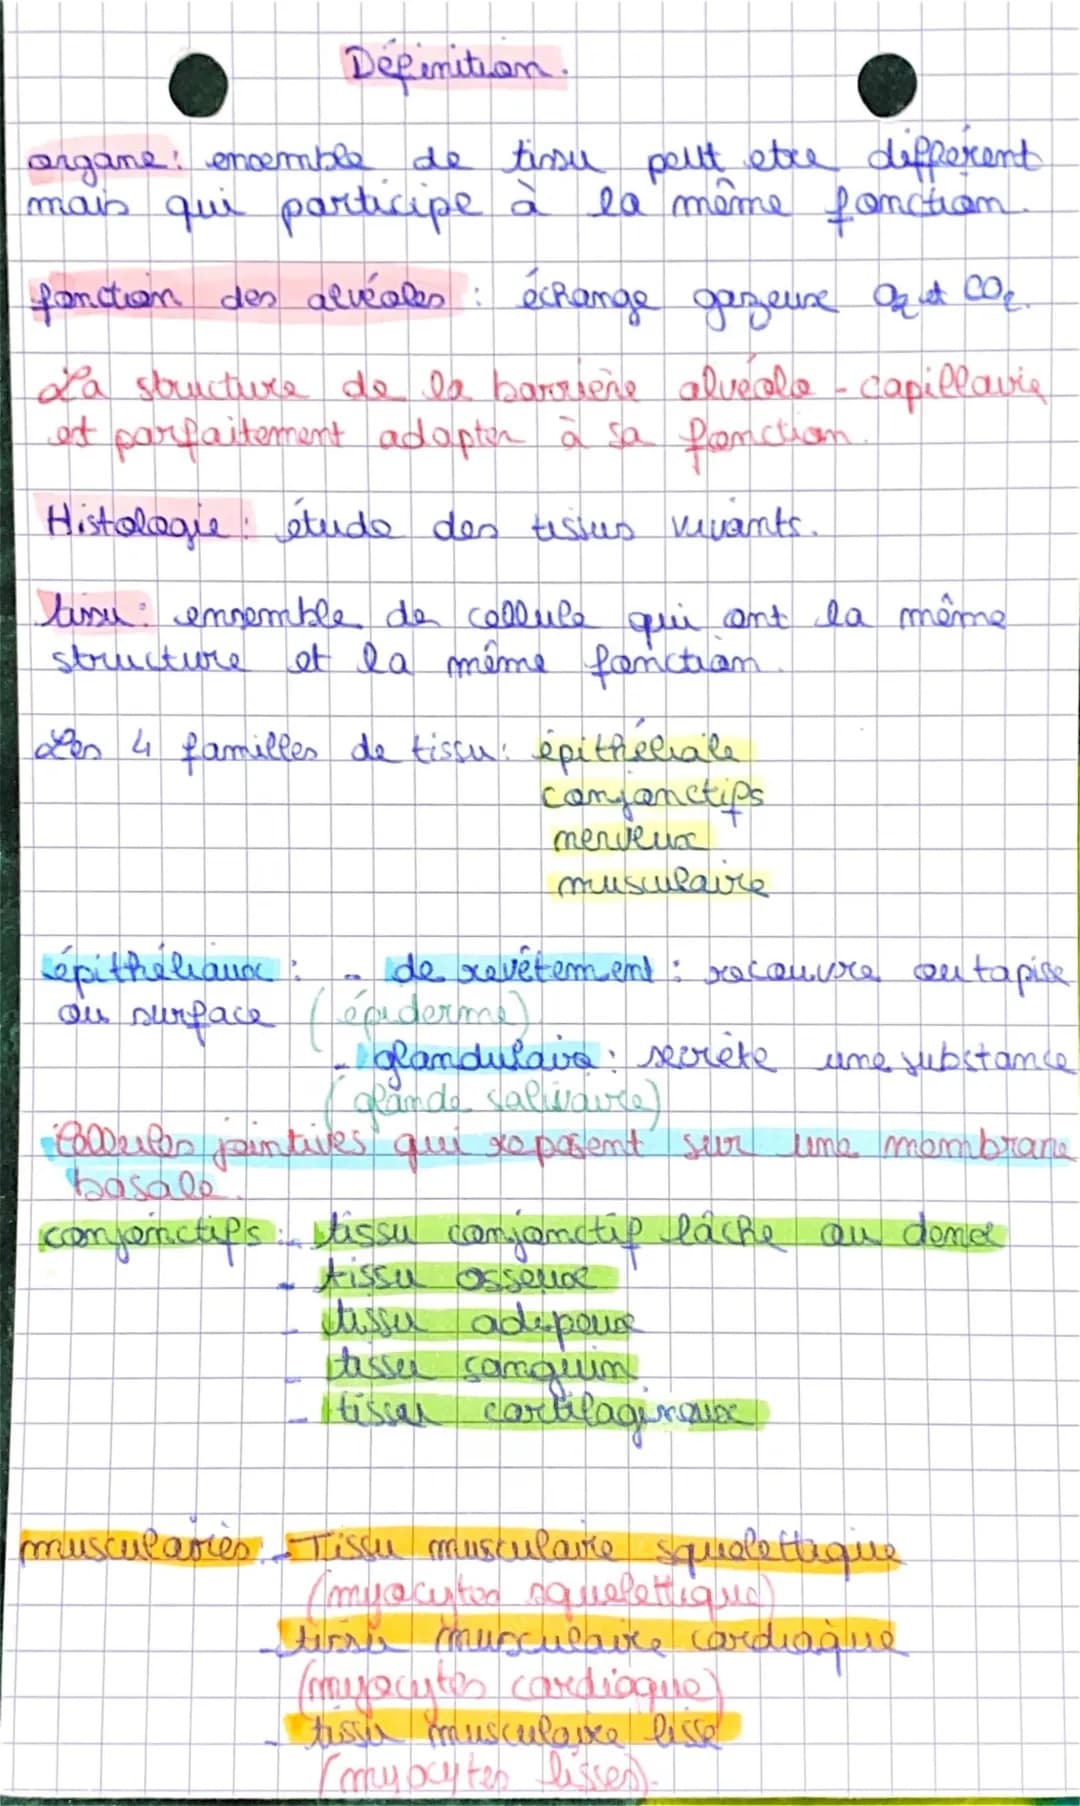 Définition.
organe: ensemble de tissu peut etre différent
mais qui participe à la même fonction.
fonction des alvéoles : échange gazeuse O2 et CO2.
La structure de la barrière alvéolo - capillaire
est parfaitement adapter à sa fonction.
Histologie : étude des tissus vivants.
tissu : ensemble de cellule qui ont la même
structure et la même fonction.
Les 4 familles de tissu : épithéliale
conjonctifs
nerveux
musculaire
épithéliaux : - de revêtement : recouvre ou tapise
ou surface (épiderme)
- glandulaire : secrète une substance
(glande salivaire)
Cellules jointives qui reposent sur une membrane
basale.
conjonctifs : - tissu conjonctif lâche ou dense
- tissu osseux
- tissu adipeux
- tissu sanguin
- tissu cartilagineux
musculaires : - Tissu musculaire squelettique
(myocytes squelettique)
- tissu musculaire cardiaque
(myocytes cardiaque)
- tissu musculaire lisse
(myocytes lisses).